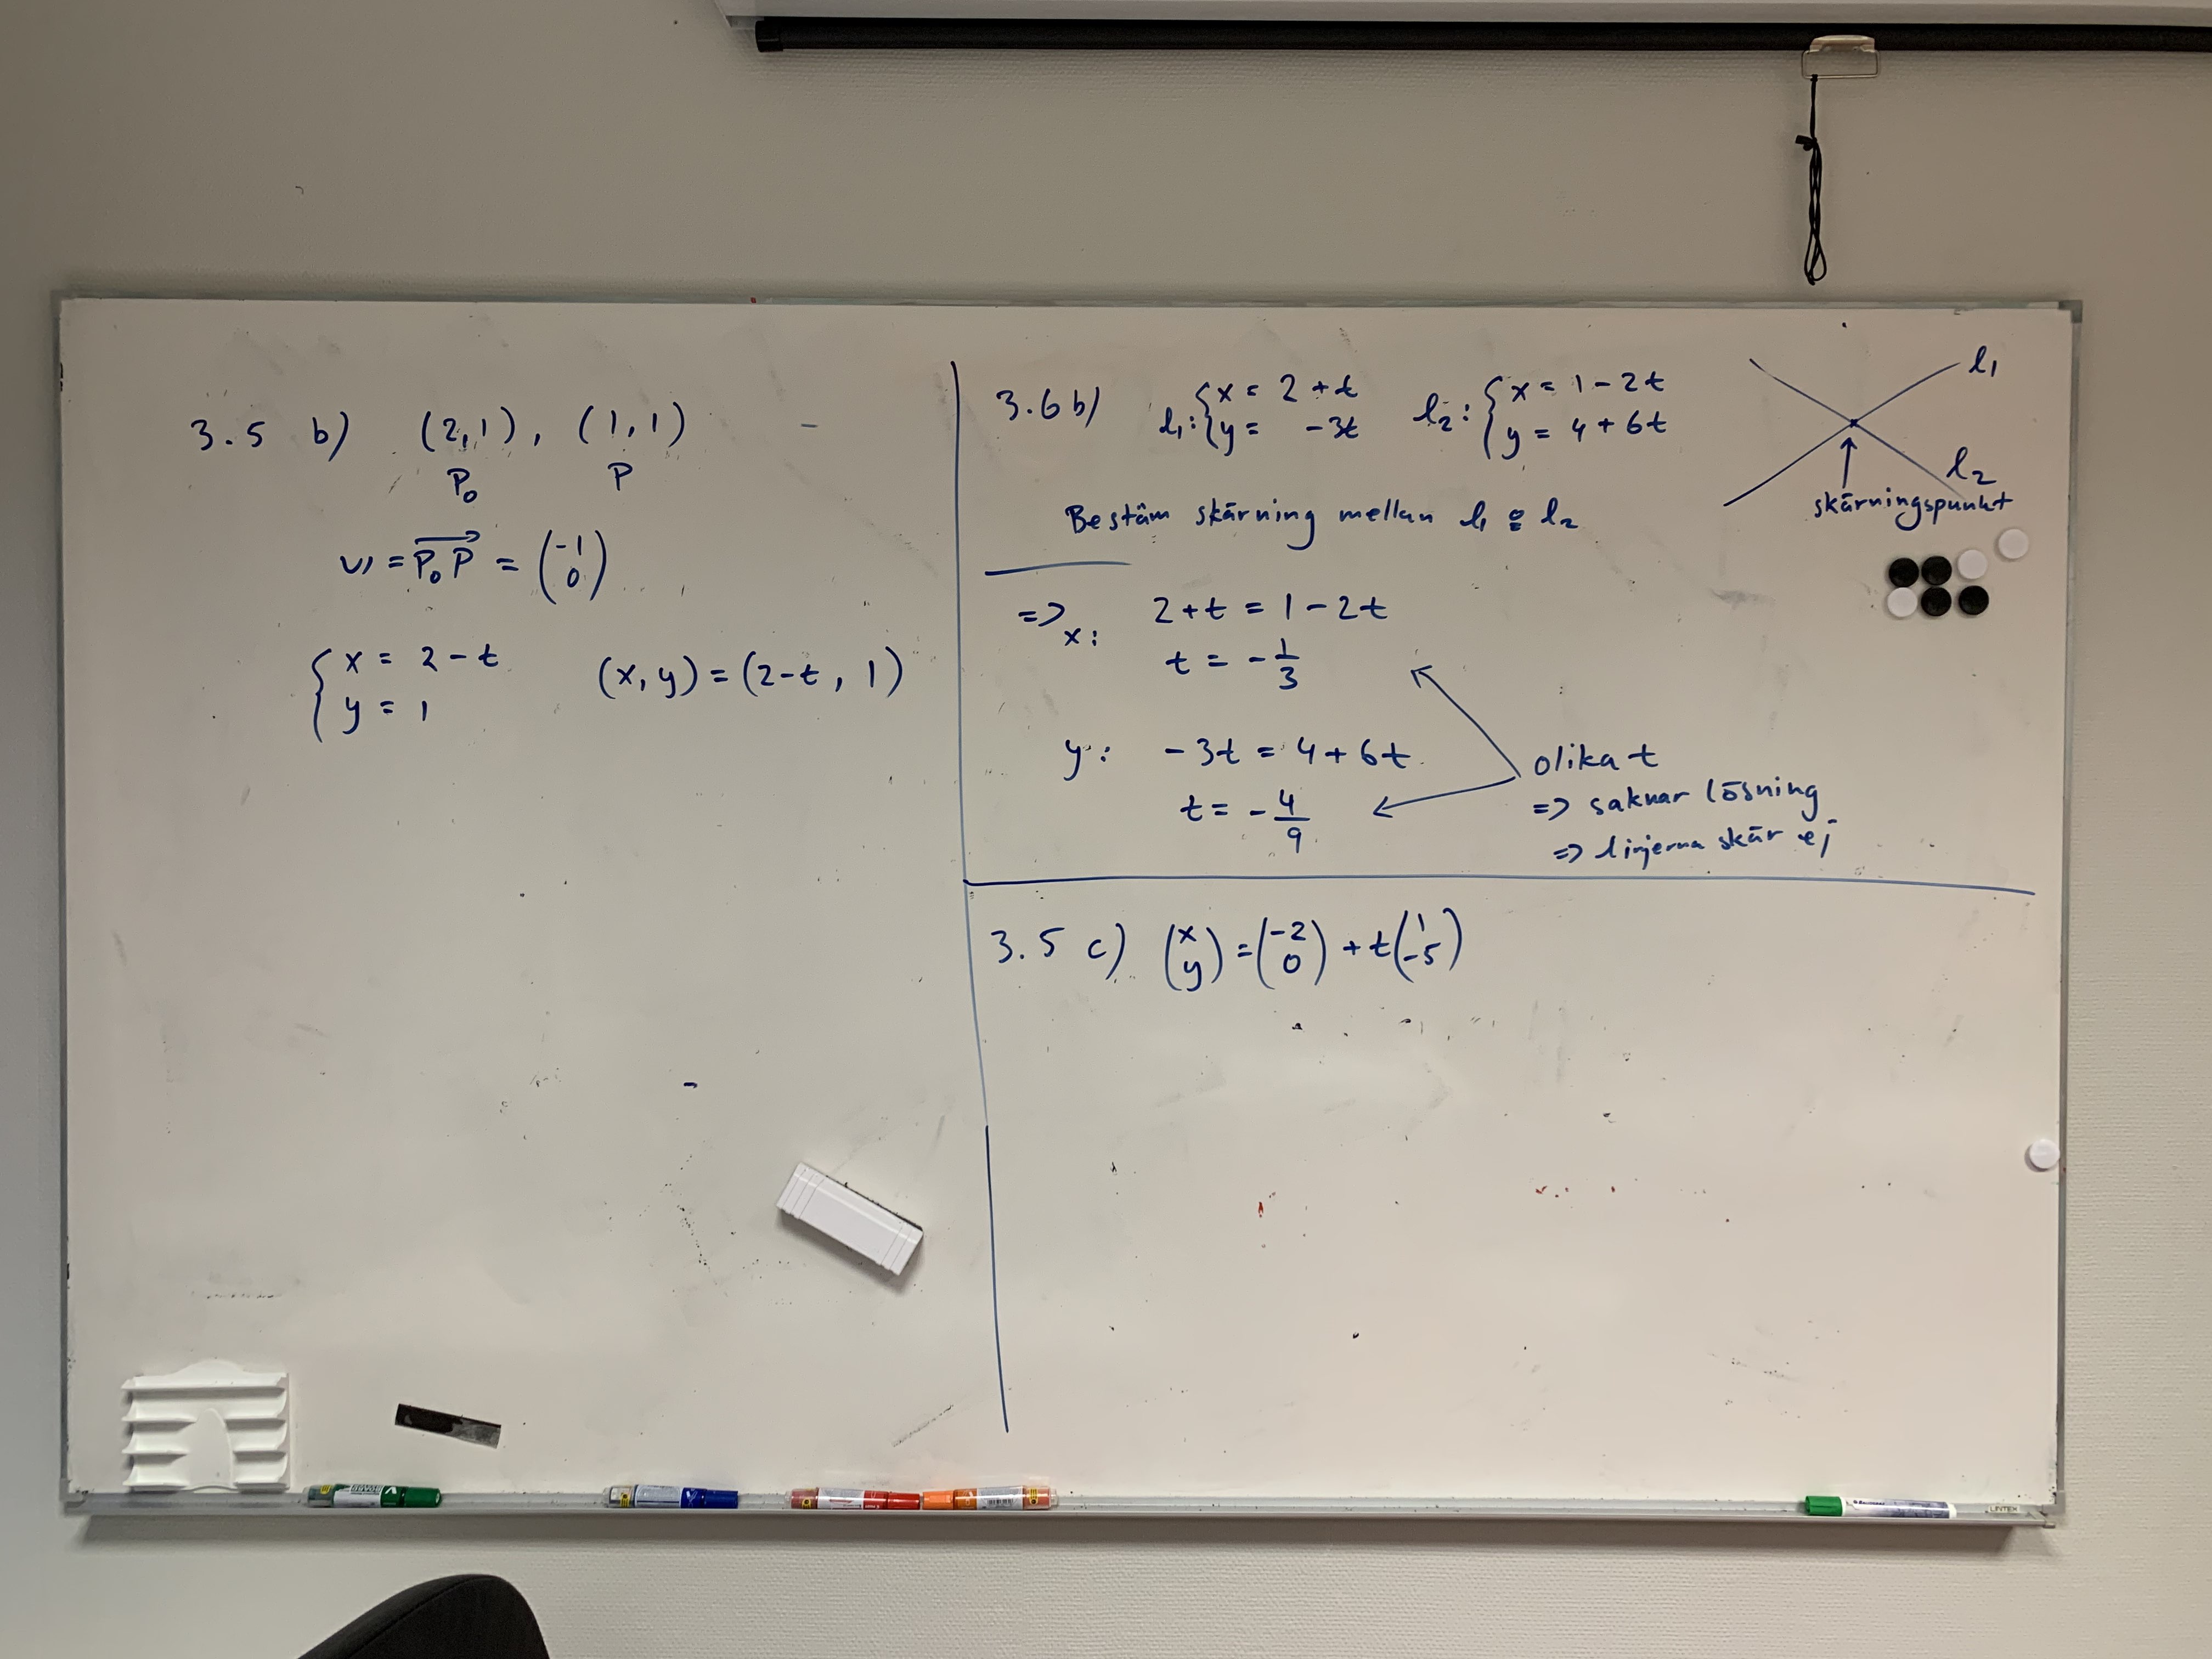 3.5 b) (2,1), (1,1)
P₀ P
v = P₀P⃗ = (-1 0)
{ x = 2 - t
y = 1
(x, y) = (2-t, 1)
3.6 b) l₁: { x = 2 + t
y = -3t
l₂: { x = 1 - 2t
y = 4 + 6t
l₁
l₂
skärningspunkt
Bestäm skärning mellan l₁ o l₂
=> x: 2 + t = 1 - 2t
t = -1/3
y: -3t = 4 + 6t
t = -4/9
olika t
=> saknar lösning
=> linjerna skär ej
3.5 c) (x y) = (-2 0) + t(1 -5)